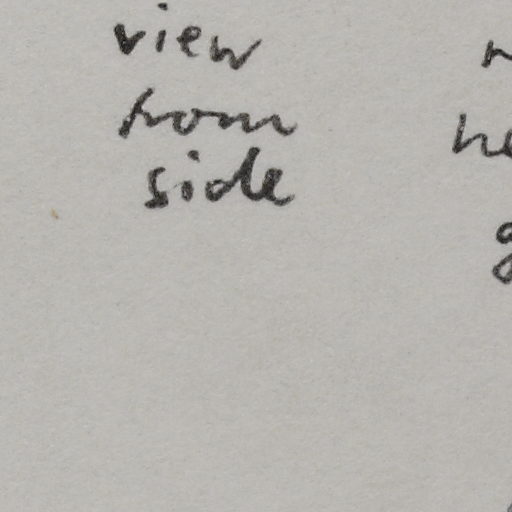 view
from
side